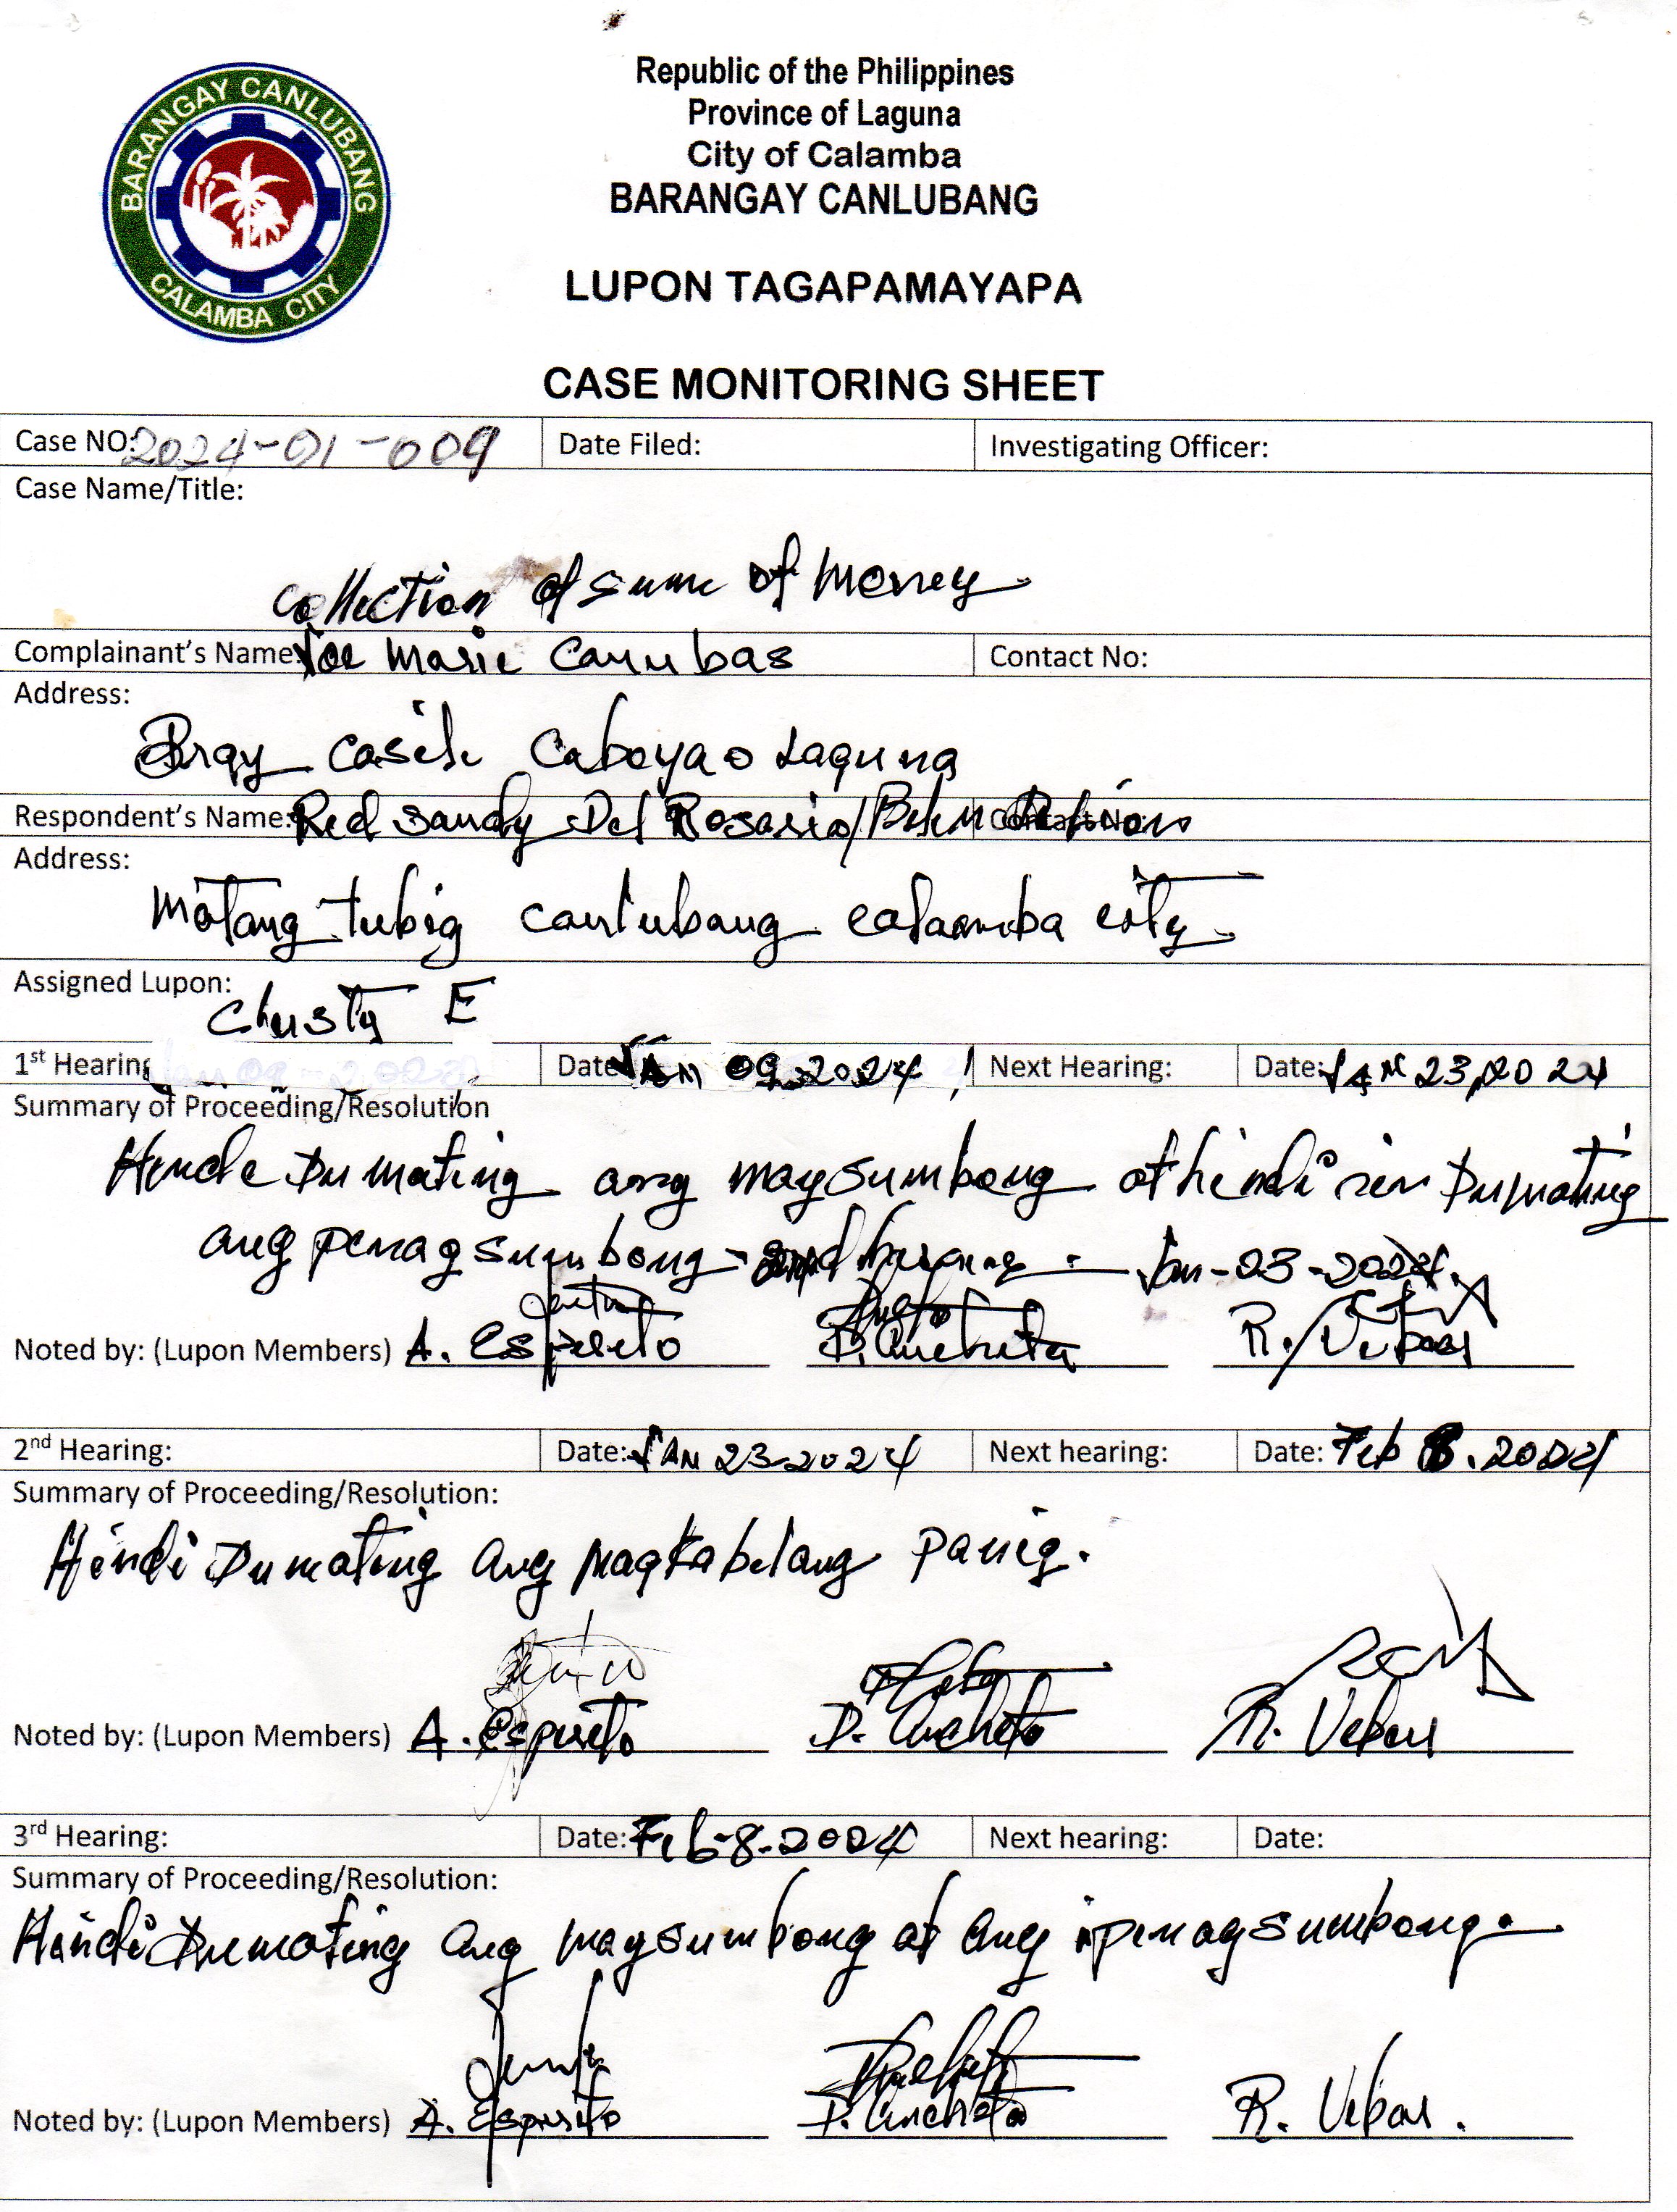 BARANGAY CANLUBANG
CALAMBA CITY
Republic of the Philippines
Province of Laguna
City of Calamba
BARANGAY CANLUBANG
LUPON TAGAPAMAYAPA
CASE MONITORING SHEET
Case NO: 2024-01-009 Date Filed: Investigating Officer:
Case Name/Title:
collection of sum of money
Complainant's Name: Joe Marie Canubas Contact No:
Address:
Brgy Casile Cabuyao Laguna
Respondent's Name: Red Sandy Del Rosario/ Contact No:
Address:
Matang tubig canlubang calamba city
Assigned Lupon:
Christy E
1st Hearing Date: JAN 09.2024 Next Hearing: Date: JAN 23,2024
Summary of Proceeding/Resolution
Hinde Dumating ang maysumbong at hindi rin Dumating
ang penagsumbong - Jan-23-2024.
Noted by: (Lupon Members) A. Espireto D. Ancheta R. Vibar
2nd Hearing: Date: JAN 23-2024 Next hearing: Date: Feb 8.2024
Summary of Proceeding/Resolution:
Hindi Dumating ang magkabilang panig.
Noted by: (Lupon Members) A. Espireto D. Ancheta R. Vibar
3rd Hearing: Date: Feb-8-2024 Next hearing: Date:
Summary of Proceeding/Resolution:
Hindi Dumating ang maysumbong at ang ipinagsumbong.
Noted by: (Lupon Members) A. Espirito D. Ancheta R. Vibar.